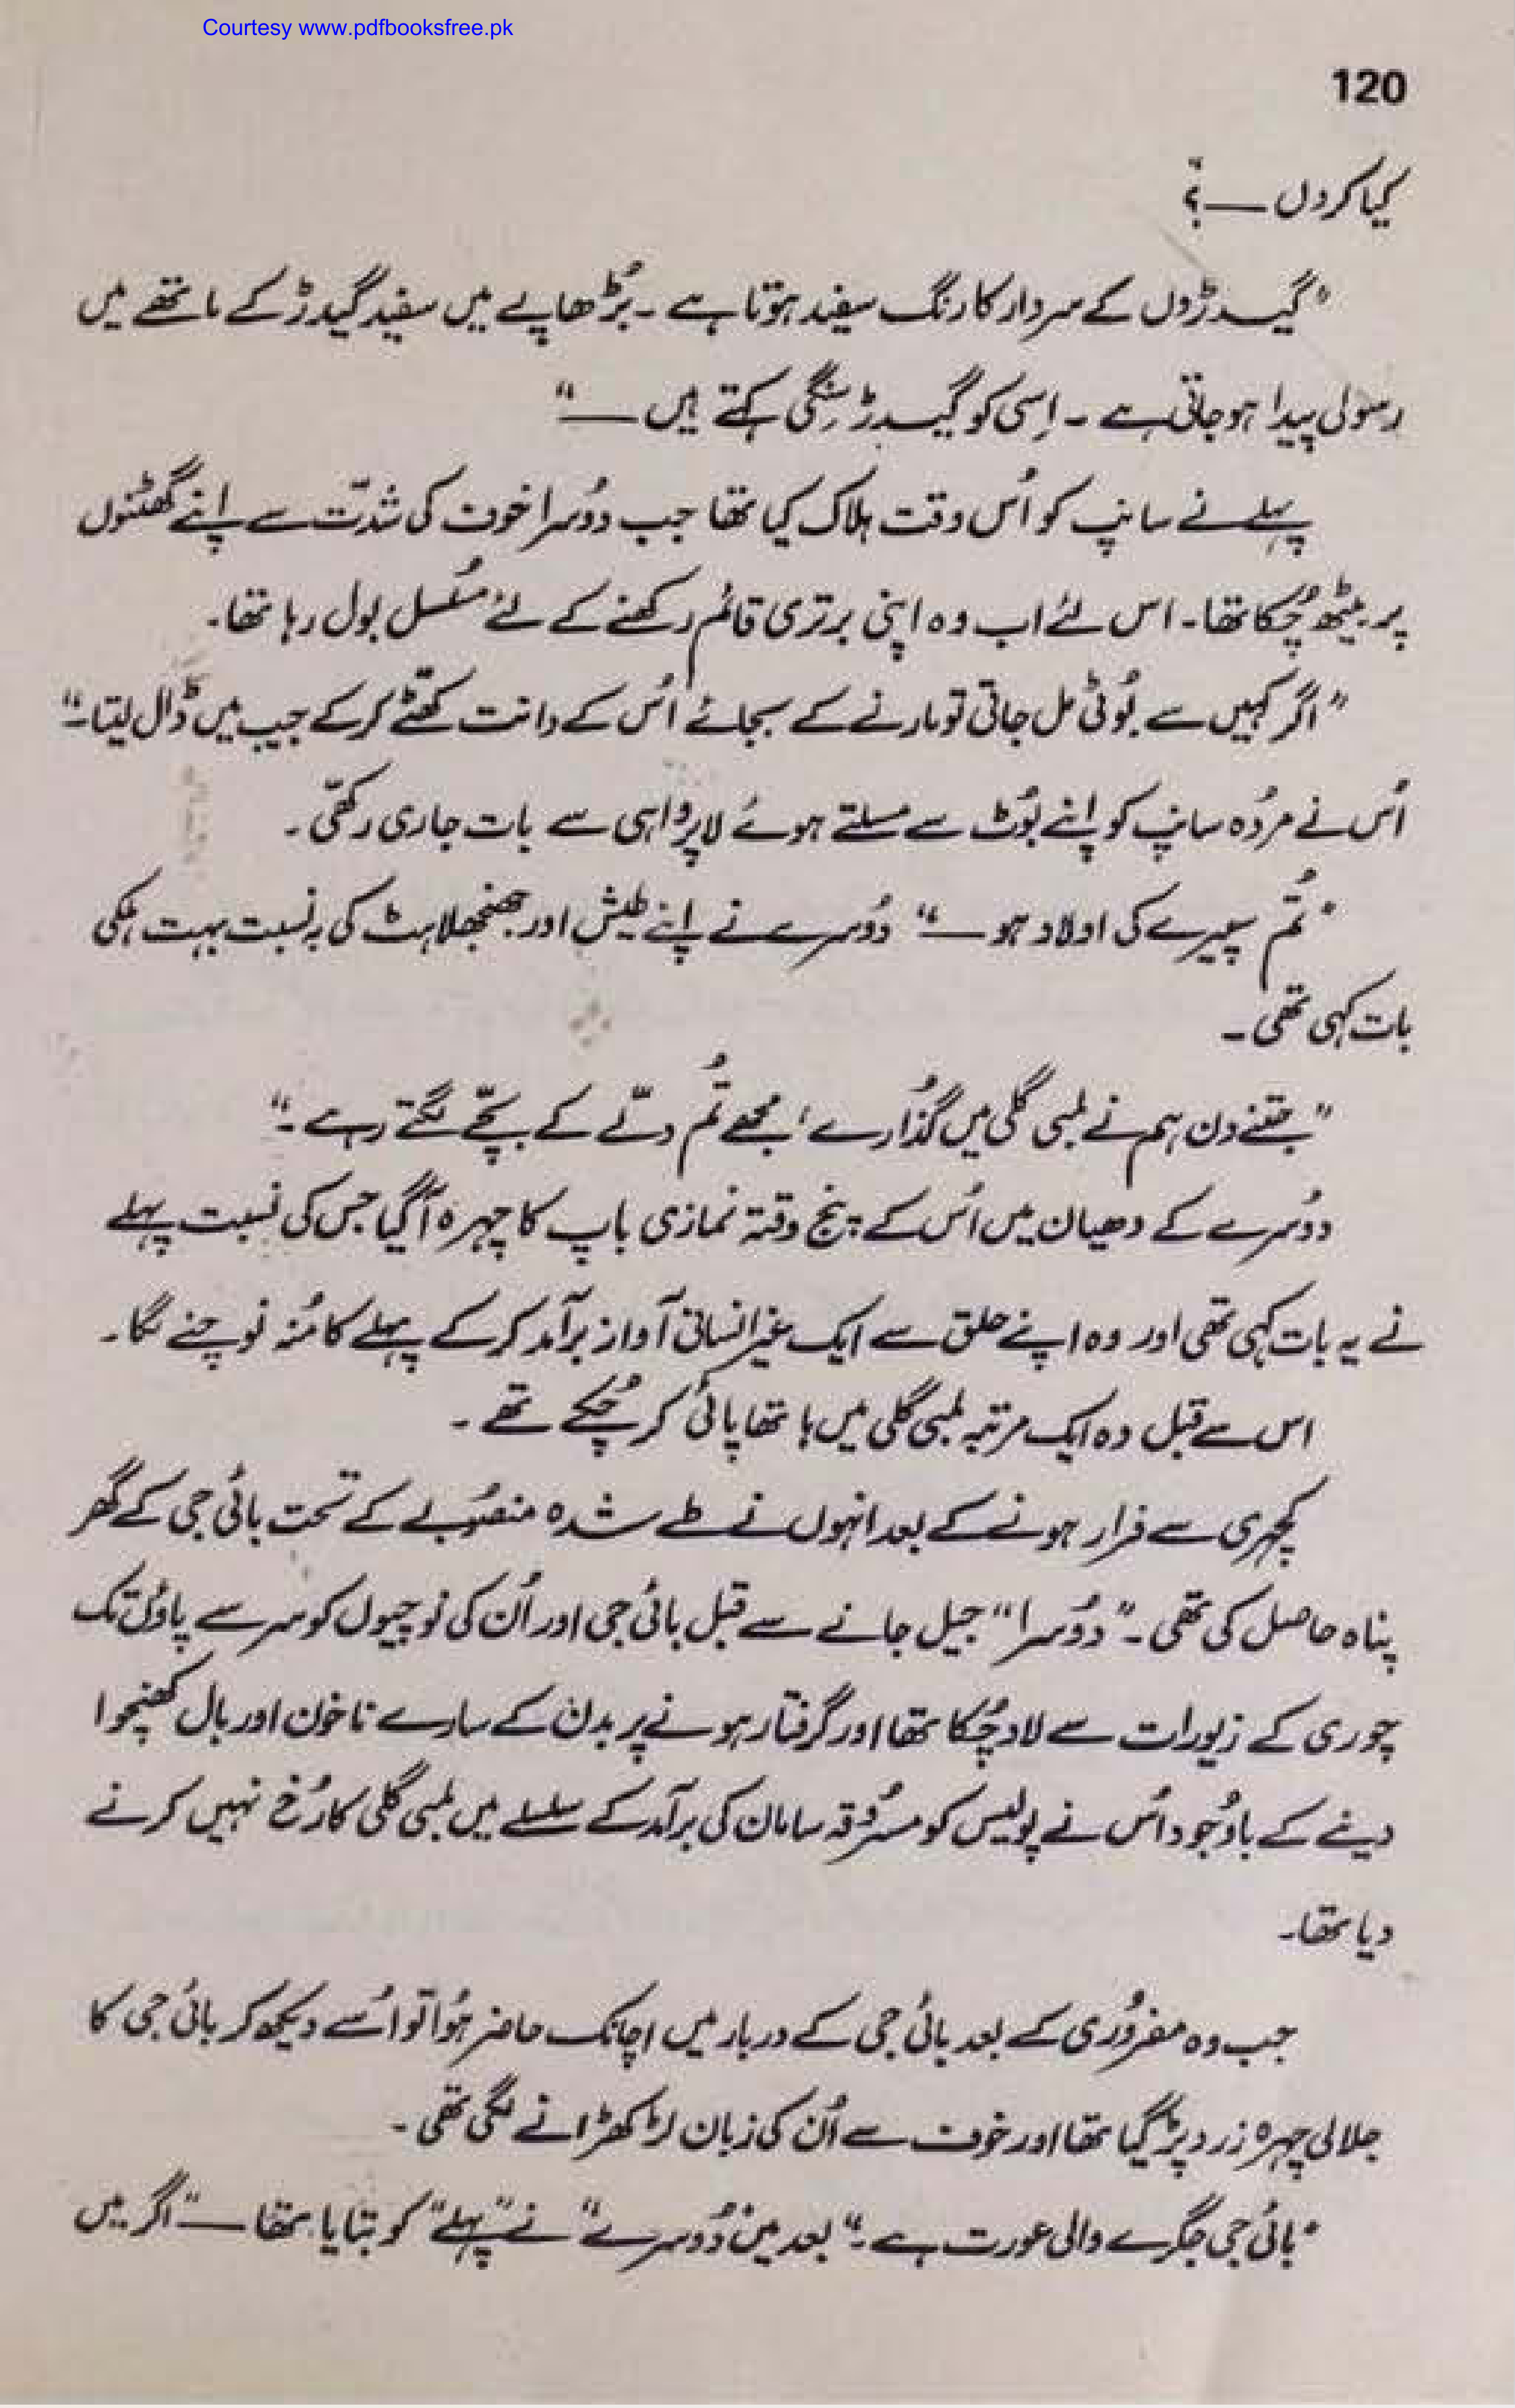 Courtesy www.pdfbooksfree.pk
120
کیا کروں ــــ؟"
"گیدڑوں کے سردار کا رنگ سفید ہوتا ہے ۔ بُڑھاپے میں سفید گیدڑ کے ماتھے میں
رسولی پیدا ہو جاتی ہے ۔ اِسی کو گیدڑ سِنگی کہتے ہیں ــــ"
پہلے نے سانپ کو اُس وقت ہلاک کیا تھا جب دوُسرا خوف کی شدّت سے اپنے گھٹنوں
پر بیٹھ چُکا تھا۔ اس لئے اب وہ اپنی برتری قائم رکھنے کے لئے مُسلسل بول رہا تھا۔
"اگر کہیں سے بُوٹی مل جاتی تو مارنے کے بجائے اُس کے دانت کھٹّے کر کے جیب میں ڈال لیتا۔"
اُس نے مردُہ سانپ کو اپنے بُوٹ سے مسلتے ہوئے لاپرواہی سے بات جاری رکھّی ۔
"تُم سپیرے کی اولاد ہو ــــ" دُوسرے نے اپنے طیش اور جھنجھلاہٹ کی بہ نسبت بہت ہلکی
بات کہی تھی ۔
"جتنے دن ہم نے لمبی گلی میں گذُارے، مجھے تُم دلّے کے بچّے لگتے رہے ۔"
دوُسرے کے دھیان میں اُس کے پنج وقتہ نمازی باپ کا چہرہ آ گیا جس کی نسبت پہلے
نے یہ بات کہی تھی اور وہ اپنے حلق سے ایک غیر انسانی آواز برآمد کر کے پہلے کا مُنہ نوچنے لگا ۔
اس سے قبل وہ ایک مرتبہ لمبی گلی میں ہاتھا پائی کر چُکے تھے ۔
کچہری سے فرار ہونے کے بعد انہوں نے طے شدہ منصُوبے کے تحت بائی جی کے گھر
پناہ حاصل کی تھی ۔ "دُوسرا" جیل جانے سے قبل بائی جی اور اُن کی نوچیوں کو سر سے پاؤں تک
چوری کے زیورات سے لاد چُکا تھا اور گرفتار ہونے پر بدن کے سارے ناخون اور بال کھنچوا
دینے کے باوُجود اُس نے پولیس کو مسرُوقہ سامان کی برآمد کے سلسلے میں لمبی گلی کا رُخ نہیں کرنے
دیا تھا۔
جب وہ مفرُوری کے بعد بائی جی کے دربار میں اچانک حاضر ہُوا تو اُسے دیکھ کر بائی جی کا
جلالی چہرہ زرد پڑ گیا تھا اور خوف سے اُن کی زبان لڑکھڑانے لگی تھی ۔
"بائی جی جگرے والی عورت ہے ۔" بعد میں "دُوسرے" نے "پہلے" کو بتایا تھا ــــ "اگر میں